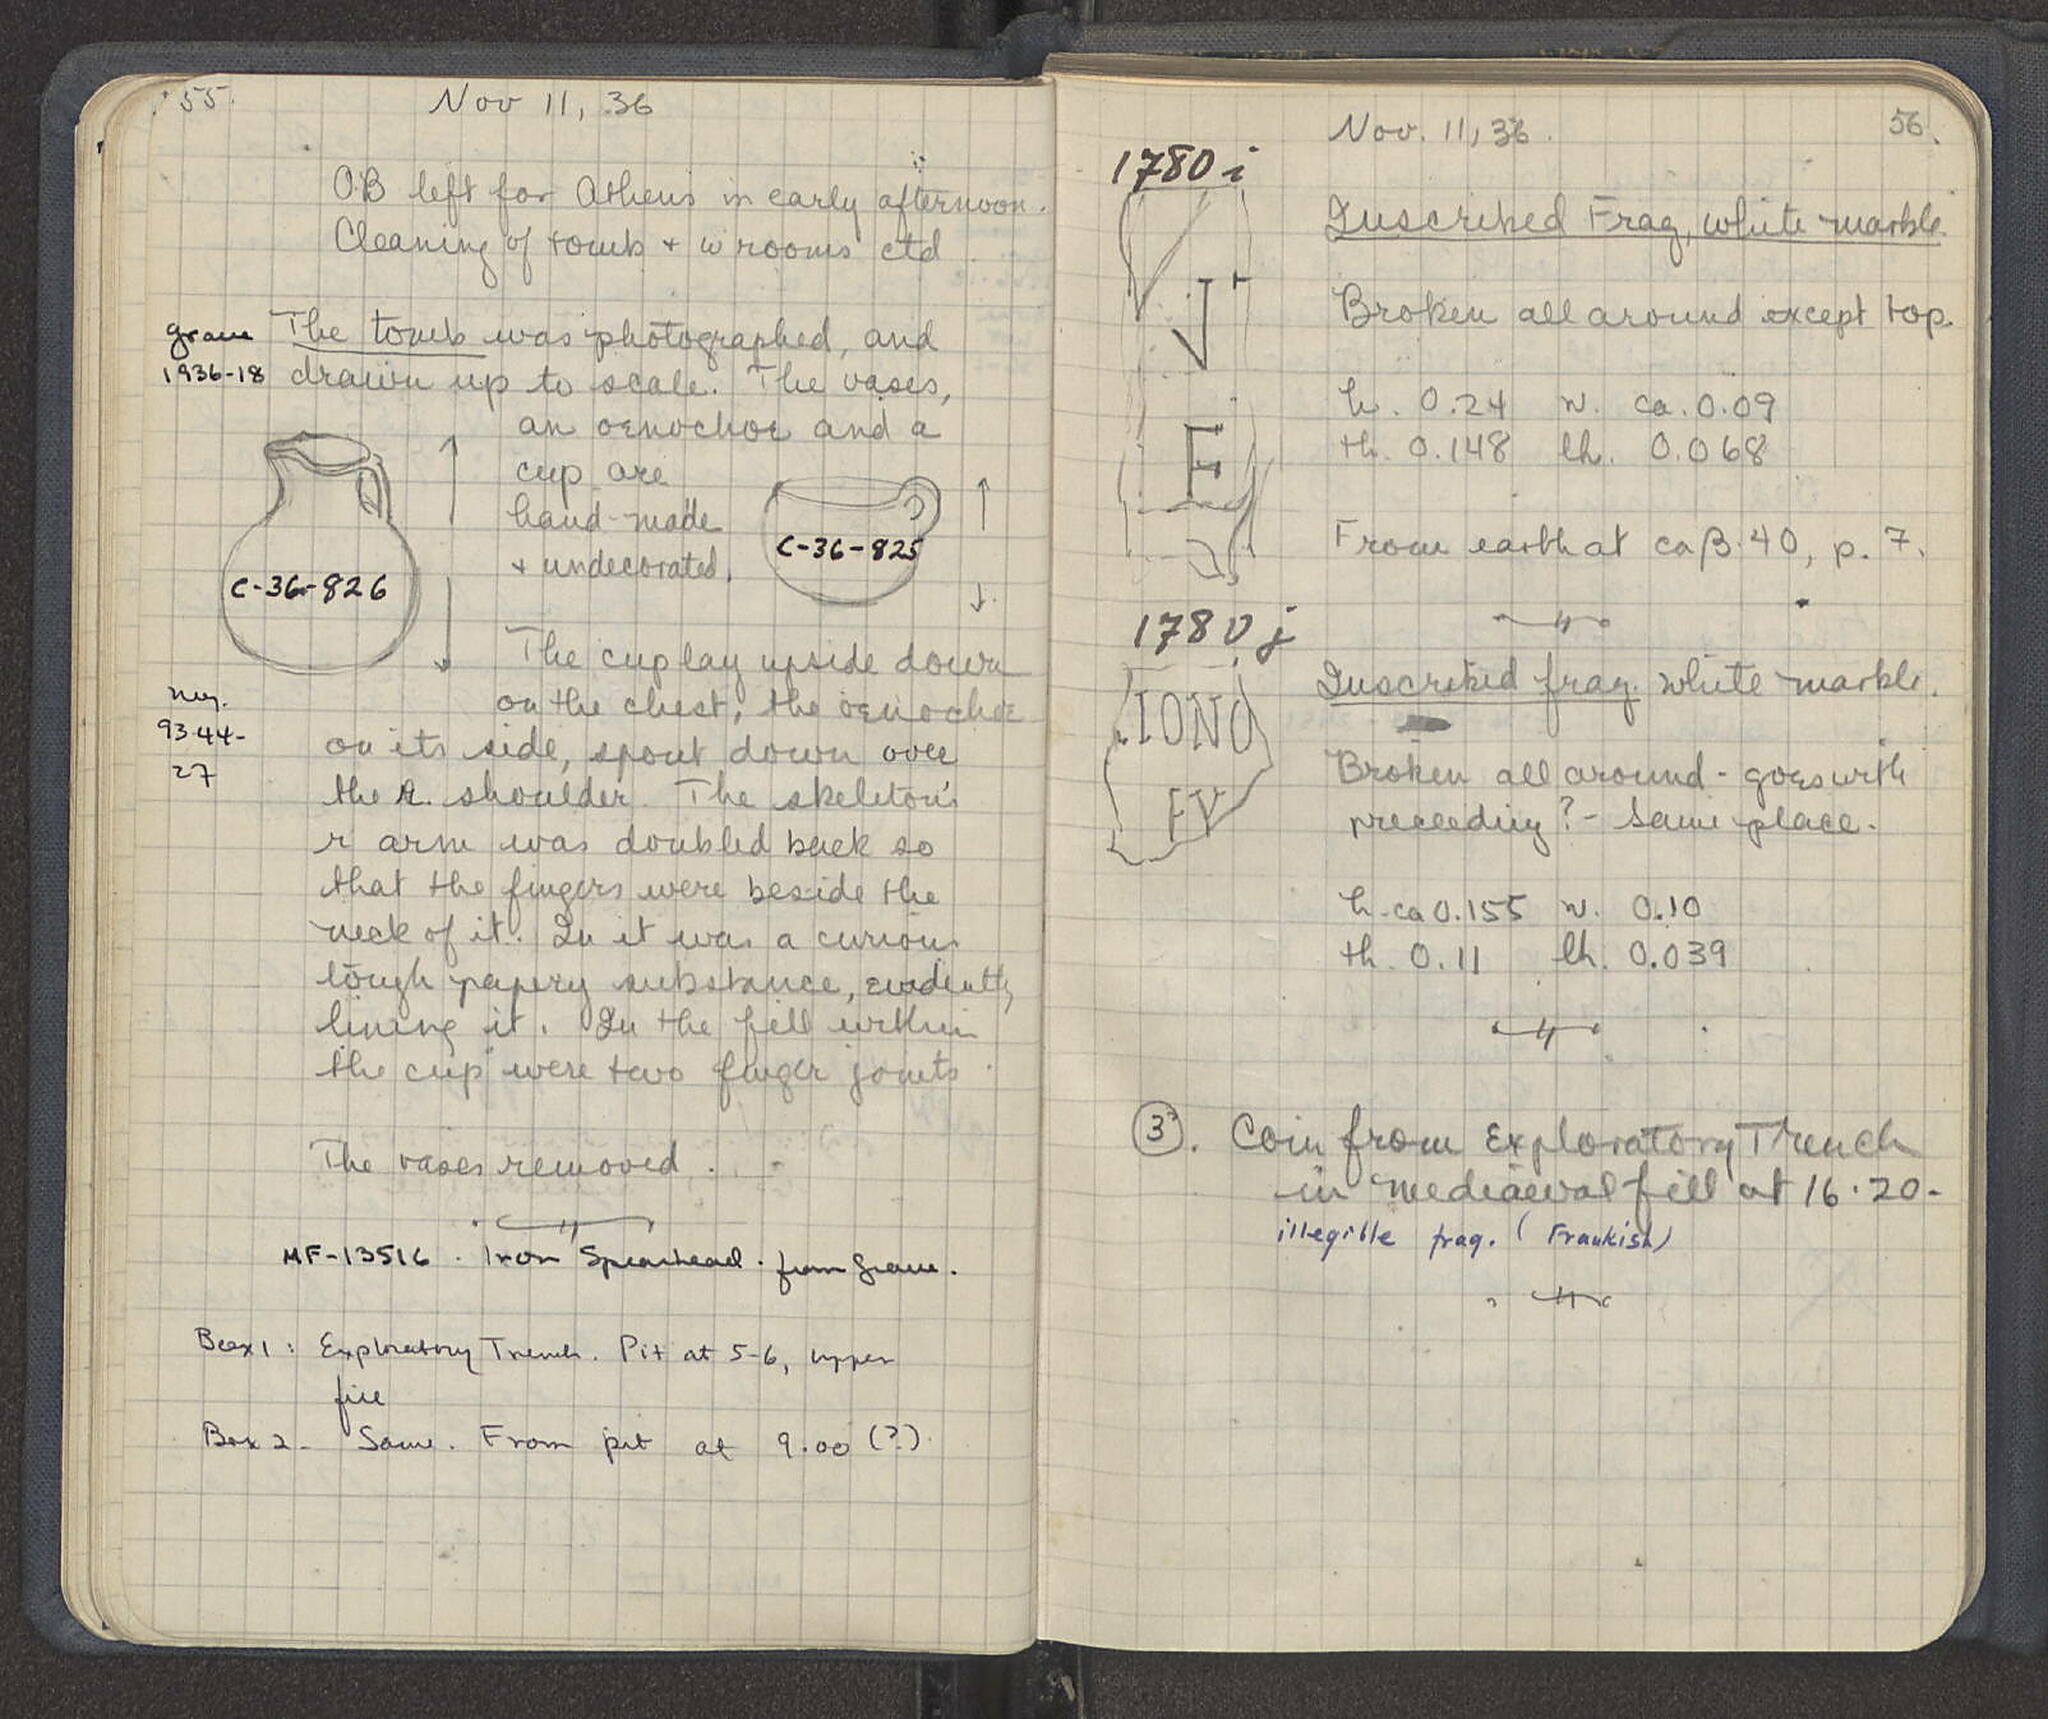 55.
Nov 11, 36
OB left for Athens in early afternoon.
Cleaning of tomb + w rooms ctd
grave
1936-18
The tomb was photographed, and
drawn up to scale. The vases,
an oenochoe and a
cup are
hand-made
+ undecorated.
C-36-826
C-36-825
The cup lay upside down
on the chest, the oenochoe
neg.
93-44-
27
on its side, spout down over
the r. shoulder. The skeleton's
r arm was doubled back so
that the fingers were beside the
neck of it. In it was a curious
tough papery substance, evidently
lining it. In the fill within
the cup were two finger joints.
The vases removed.
MF-13516. Iron Spearhead. from grave.
Box 1: Exploratory Trench. Pit at 5-6, upper
fill
Box 2- Same. From pit at 9.00 (?)
56.
Nov. 11, 36.
1780 i
Inscribed Frag, white marble.
Broken all around except top.
h. 0.24 w. ca. 0.09
th. 0.148 lh. 0.068
E
From earth at ca β.40, p. 7.
1780 j
Inscribed frag. white marble.
IONO
EY
Broken all around - goes with
preceeding? - Same place.
h. ca 0.155 w. 0.10
th. 0.11 lh. 0.039
3. Coin from Exploratory Trench
in mediaeval fill at 16.20-
illegible frag. (Frankish)